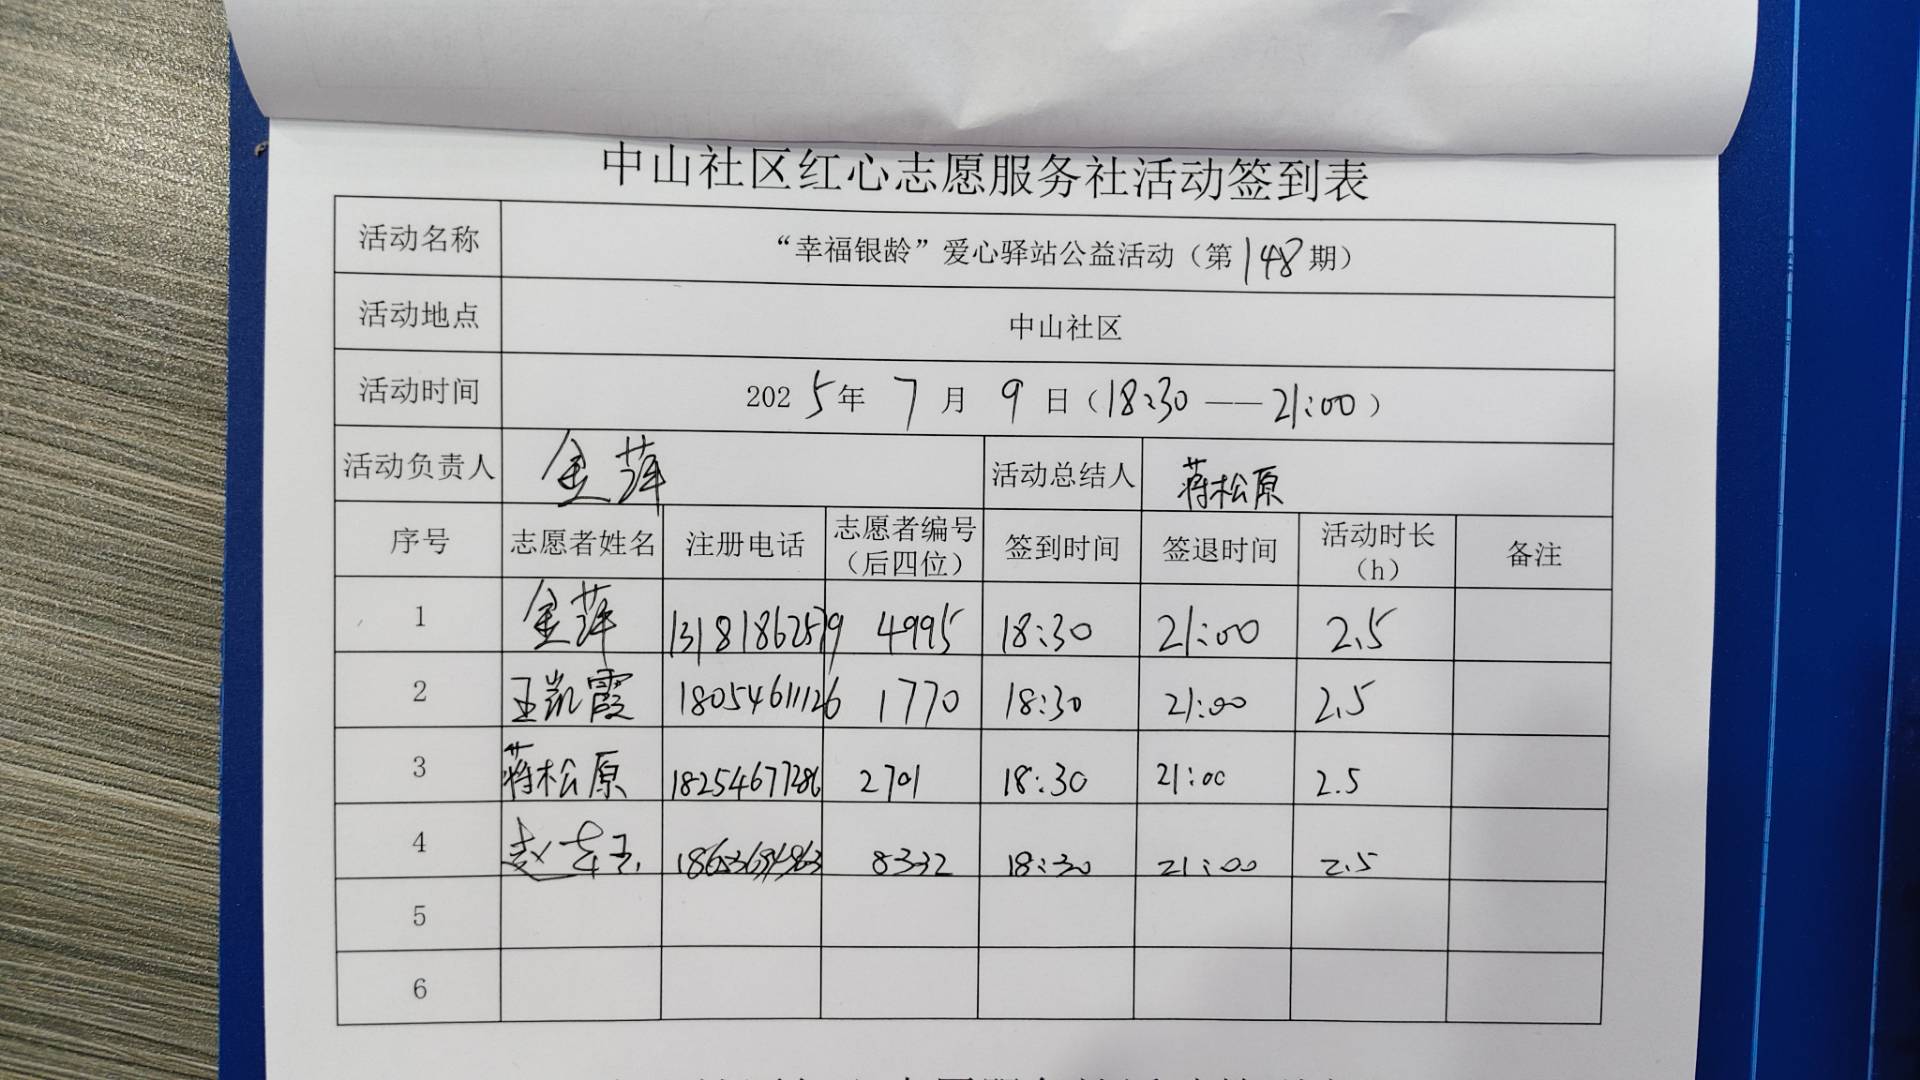 中山社区红心志愿服务社活动签到表
活动名称 “幸福银龄”爱心驿站公益活动（第148期）
活动地点 中山社区
活动时间 2025年 7月 9日（18:30 —— 21:00）
活动负责人 金萍 活动总结人 蒋松原
序号 志愿者姓名 注册电话 志愿者编号（后四位） 签到时间 签退时间 活动时长（h） 备注
1 金萍 13181862579 4995 18:30 21:00 2.5
2 王凯霞 18054611126 1770 18:30 21:00 2.5
3 蒋松原 18254677286 2701 18:30 21:00 2.5
4 8332 18:30 21:00 2.5
5
6